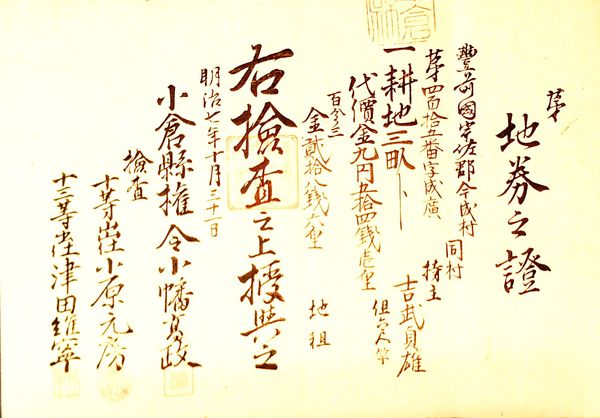 第
地券之證
豊前國宇佐郡今成村
第四百拾五番字成廣
同村
持主
吉武貞雄
一耕地三畝
代價金九円五拾四銭壱厘
百分三
金貳拾八銭六厘
地租
右撿査之上授與之
明治七年十月三十一日
小倉縣権令小幡高政
撿査
十等出仕小原元房
十三等出仕津田維寧